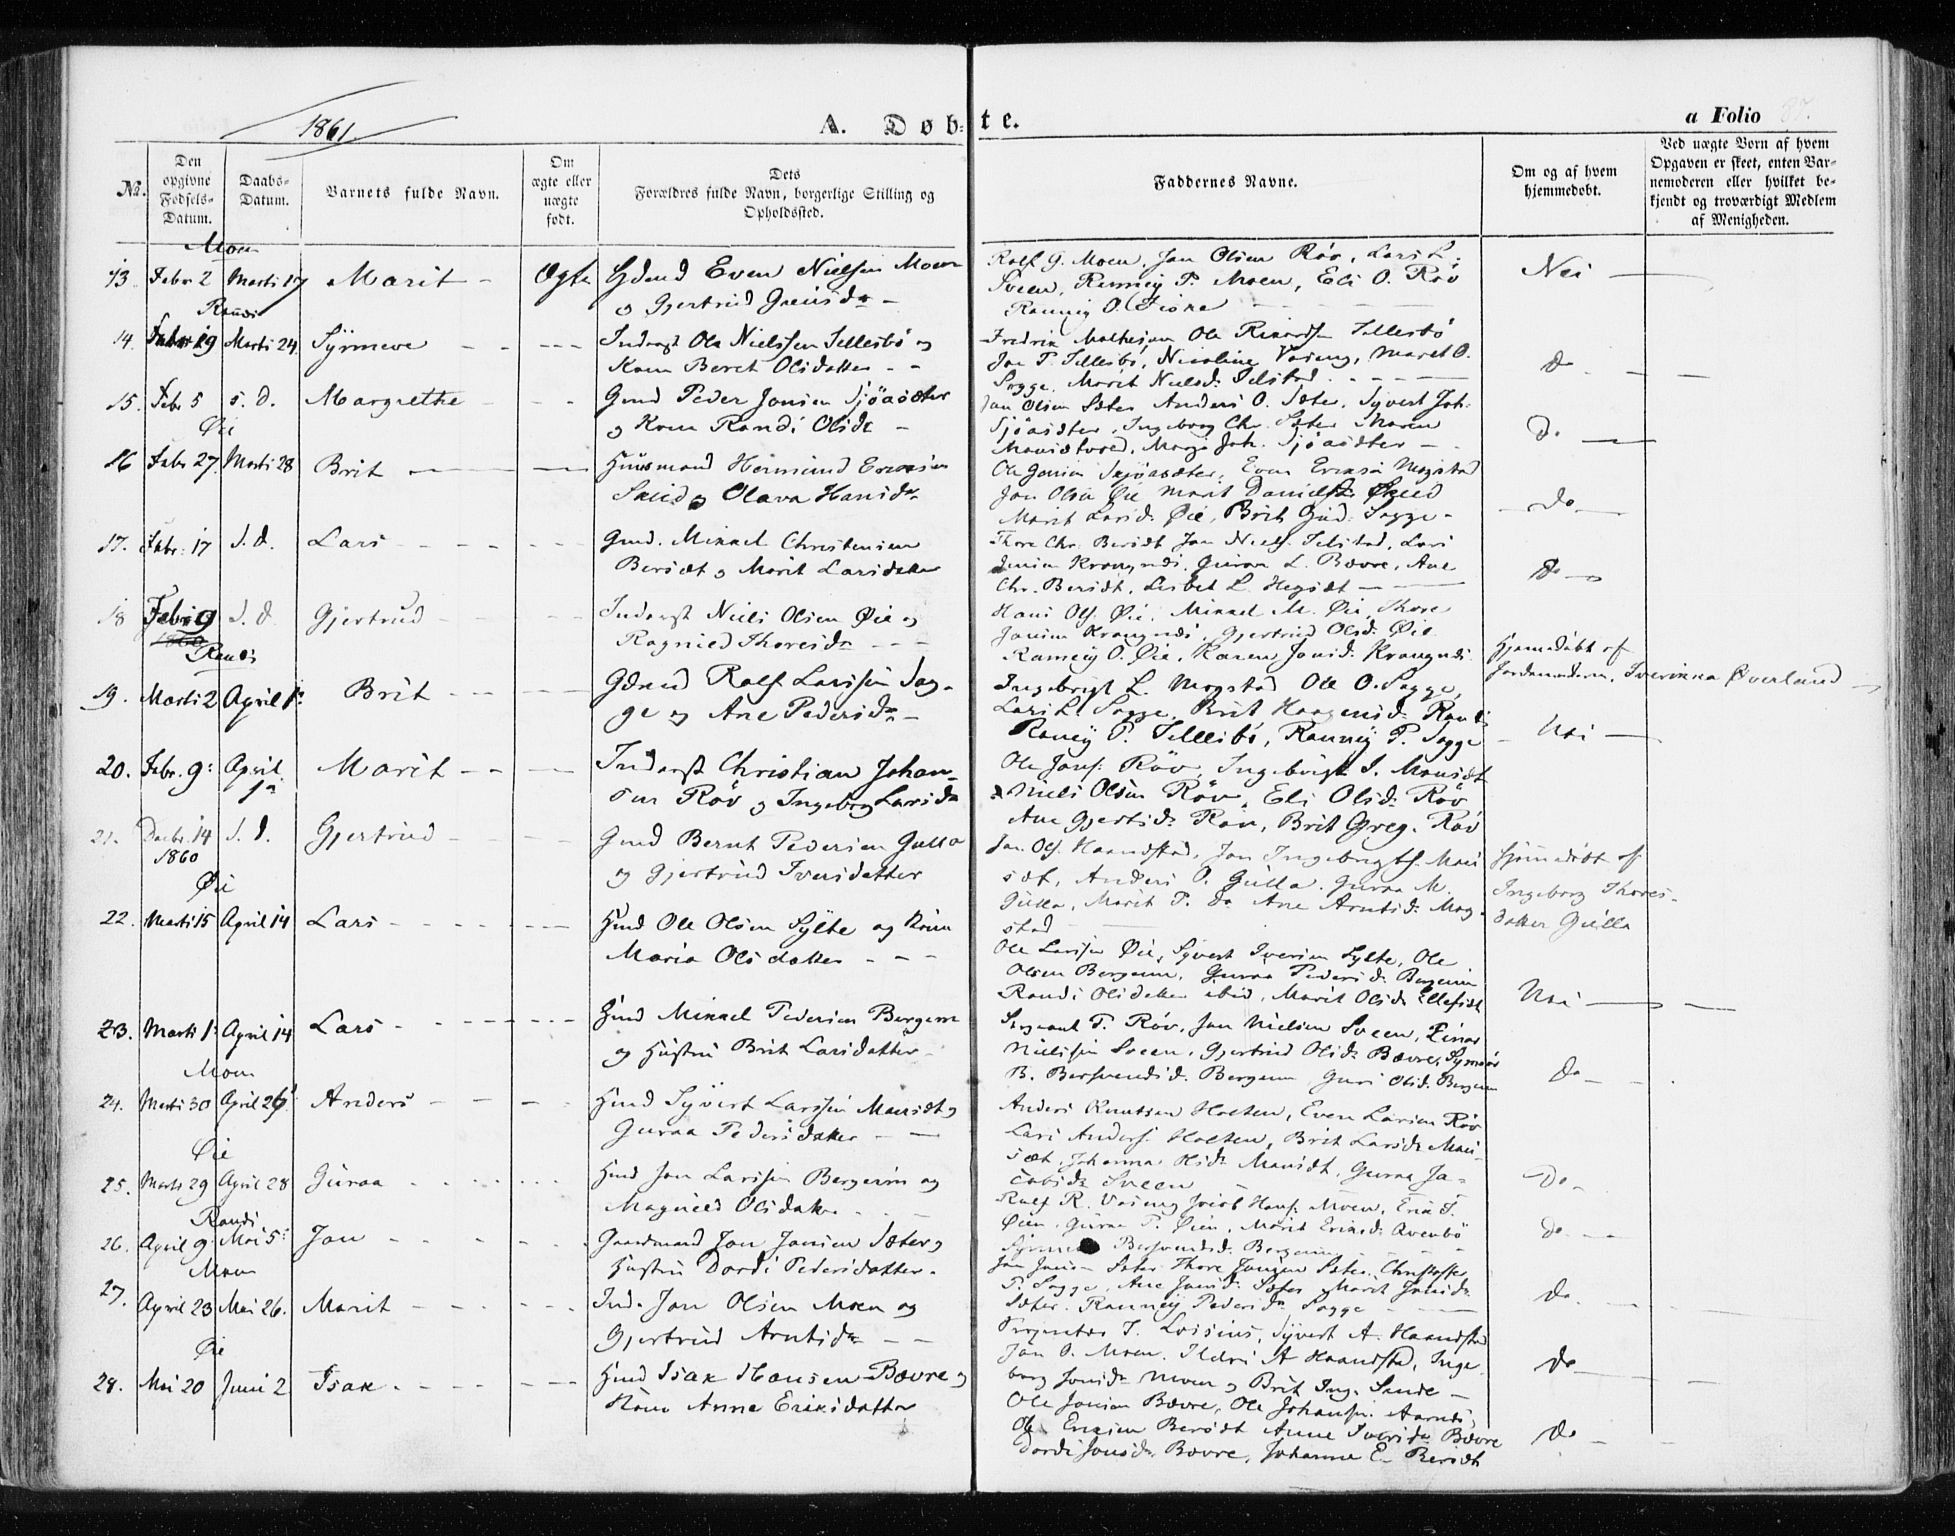 1861.
A. Døbte.
a Folio 87.
No.
Den opgivne Fødsels-Datum.
Daabs-Datum.
Barnets fulde Navn.
Om ægte eller uægte født.
Dets Forældres fulde Navn, borgerlige Stilling og Opholdssted.
Faddernes Navne.
Om og af hvem hjemmedøbt.
Ved uægte Born af hvem Opgaven er skeet, enten Barnemoderen eller hvilket bekjendt og troværdigt Medlem af Menigheden.
Moen
13 Febr 2 Marti 17 Marit - Ægte Gdmd Even Nielsen Moen
og Gjertrud
Rolf G. Moen, Jon Olsen Røv, Lars L.
Sveen, Ranney P. Moen, Eli O. Røv
Ranney O.
Nei
Randi
14. Febr 19 Marti 24 Syrneve Inderst Ole Nielssen Sellesbö og
Kone Beret Olsdatter
Fredrik Mathesen Ole Sellesbö
Jon P. Sellesbö, Nicoline Vaseng, Maret O.
Sogge, Marit Nielsd. Selstad
Do
15. Febr 5 s. d. Margrethe Gmd Peder Jonsen Sjöasæter
og Kone Randi Olsdr
Jon Olsen Sæter Anders O. Sæter, Syvert Joh.
Sjöasæter, Ingeborg Chr. Sæter Maren
Joh. Sjöasæter
Do
Øie
16 Febr 27. Marti 28 Brit Huusmand Ericksen
og Olava Hansdr
Ole Jonsen Sjöasæter, Even Eriksen Mogstad
Jon Olsen Øie Marit Danielsdr
Marit Larsd. Øie, Brit Gud. Sogge
Do
17. Febr. 17 s. d. Lars Gmd. Mikkel Christensen
Bersæt og Marit Larsdatter
Thore Chr. Bersæt Jon Niels. Selstad, Lars
Jonsen Kvangnæs, Guraa L. Bævre, Ane
Chr. Bersæt, Lisbet L. Hegsæt
Do
18 Febr 9 s. d. Gjertrud Inderst Niels Olsen Øie og
1860
Ragnild Thoresdr
Hans Ols. Øie, Mikkel M. Øie, Thore
Jonsen Kvangnæs, Gjertrud Olsd. Øie
Ranney O. Øie, Karen Jonsd. Kvangnæs
Hjemmedøbt af
Jordemoderen, Overland
Randi
19. Marti 2 April 1: Brit Gdmd Rolf Larssen Sog-
ge og Ane Pedersdr
Ingebrigt L. Mogstad Ole O. Sogge,
Lars L. Sogge, Brit Haagensd. Randi
Raney P. Sellesbö, Ranney P. Sogge
Nei
20. Febr. 9: April 1ste Marit Inderst Christian Johan-
sen Røv og Ingeborg Larsdr
Ole Jons. Røv, Ingebrigt J.
Niels Olsen Røv, Eli Olsd. Røv
Ane Gjertsd. Røv, Brit Greg. Røv
21. Decbr. 14 s. d. Gjertrud Gmd Bernt Pedersen Gulla
1860
og Gjertrud Iversdatter
Jon Ols. Haandstad, Jon Ingebrigts. Mau-
sæt, Anders P. Gulla, Guraa M.
Gulla, Marit P. do Ane Arntsd. Mog-
stad
Hjemmedöbt af
Ingeborg Thores-
datter Gulla
Øie
22. Marti 15 April 14 Lars Hmd Ole Olsen Sylte og Kone
Maria Olsdatter
Ole Larssen Øie, Syvert Iversen Sylte, Ole
Olsen Bergem, Guraa Pedersd. Bergem
Randi Olsdatter ibid, Marit Olsd.
Nei
23. Marti 1: April 14 Lars Hmd Mikkel Pedersen Bergem
og Hustru Brit Larsdatter
P. Røv, Jon Nielsen Sveen, Einar
Nielsen Sveen, Gjertrud Olsd. Bævre,
B. Bersvendsd. Bergem Guri Olsd. Bergem
Do
Moen
24. Marti 30 April 26 Anders Hmd Syvert Larssen Mausæt og
Guraa Pedersdatter
Anders Knutsen Holten, Even Larsen Røv
Lars Anders. Holten, Brit Larsdr Mau-
sæt, Johanna Mausæt, Guraa Ja-
cobsdr Sveen
Do
Øie
25. Marti 29 April 28 Guraa Hmd Jon Larssen Bergem og
Magnild Olsdatter
Rolf R. Vaseng Jacob Hans. Moen, Erik J.
Øien, Guraa P. Øien, Marit Eriksd. Qvenbö
Bersvendsd. Bergem
do
Randi
26. April 9 Mai 5: Jon Gaardmand Jon Jonsen Sæter og
Hustru Dordi Pedersdatter
Jon Jonsen Sæter Thore Jonsen Sæter, Christoffer
P. Sogge, Ane Jonsd. Sæter Marit Jonsdr
Sæter, Ranney Pedersdr Sogge
Do
Moen
27. April 23 Mai 26. Marit Ind. Jon Olsen Moen og
Gjertrud Arntsdr
J. Syvert A. Haandstad
Jon O. Moen, Ildri A Haandstad, Inge-
borg Jonsdr Moen og Brit Ing.
Do
Øie
28. Mai 20 Juni 2 Isak Hmd Isak Hansen Bævre og
Kone Anne Eriksdatter
Ole Jonsen Bævre, Ole Johansen Aarnæs,
Ole Ericksen Bersæt Anne Iversdr Bævre
Dordi Jonsdr Bævre, Johanne E. Bersæt
Do